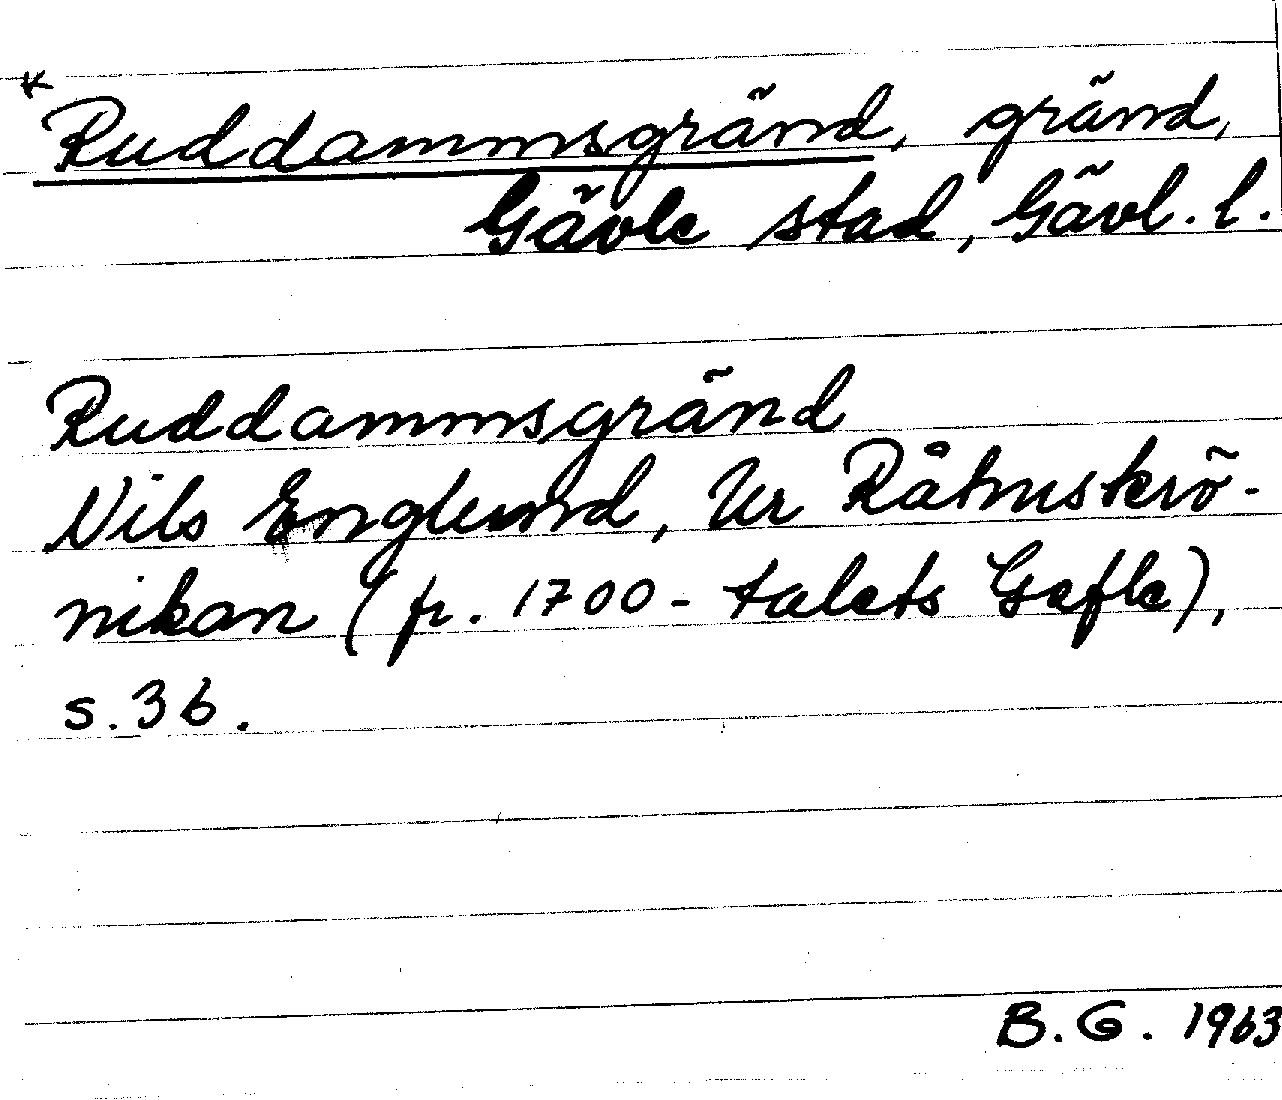 * Ruddammsgränd, gränd,
Gävle stad, Gävl. l.
Ruddammsgränd
Nils Englund, Ur Råhuskrö-
nikan (fr. 1700-talets Gefle),
s. 36.
B. G. 1963